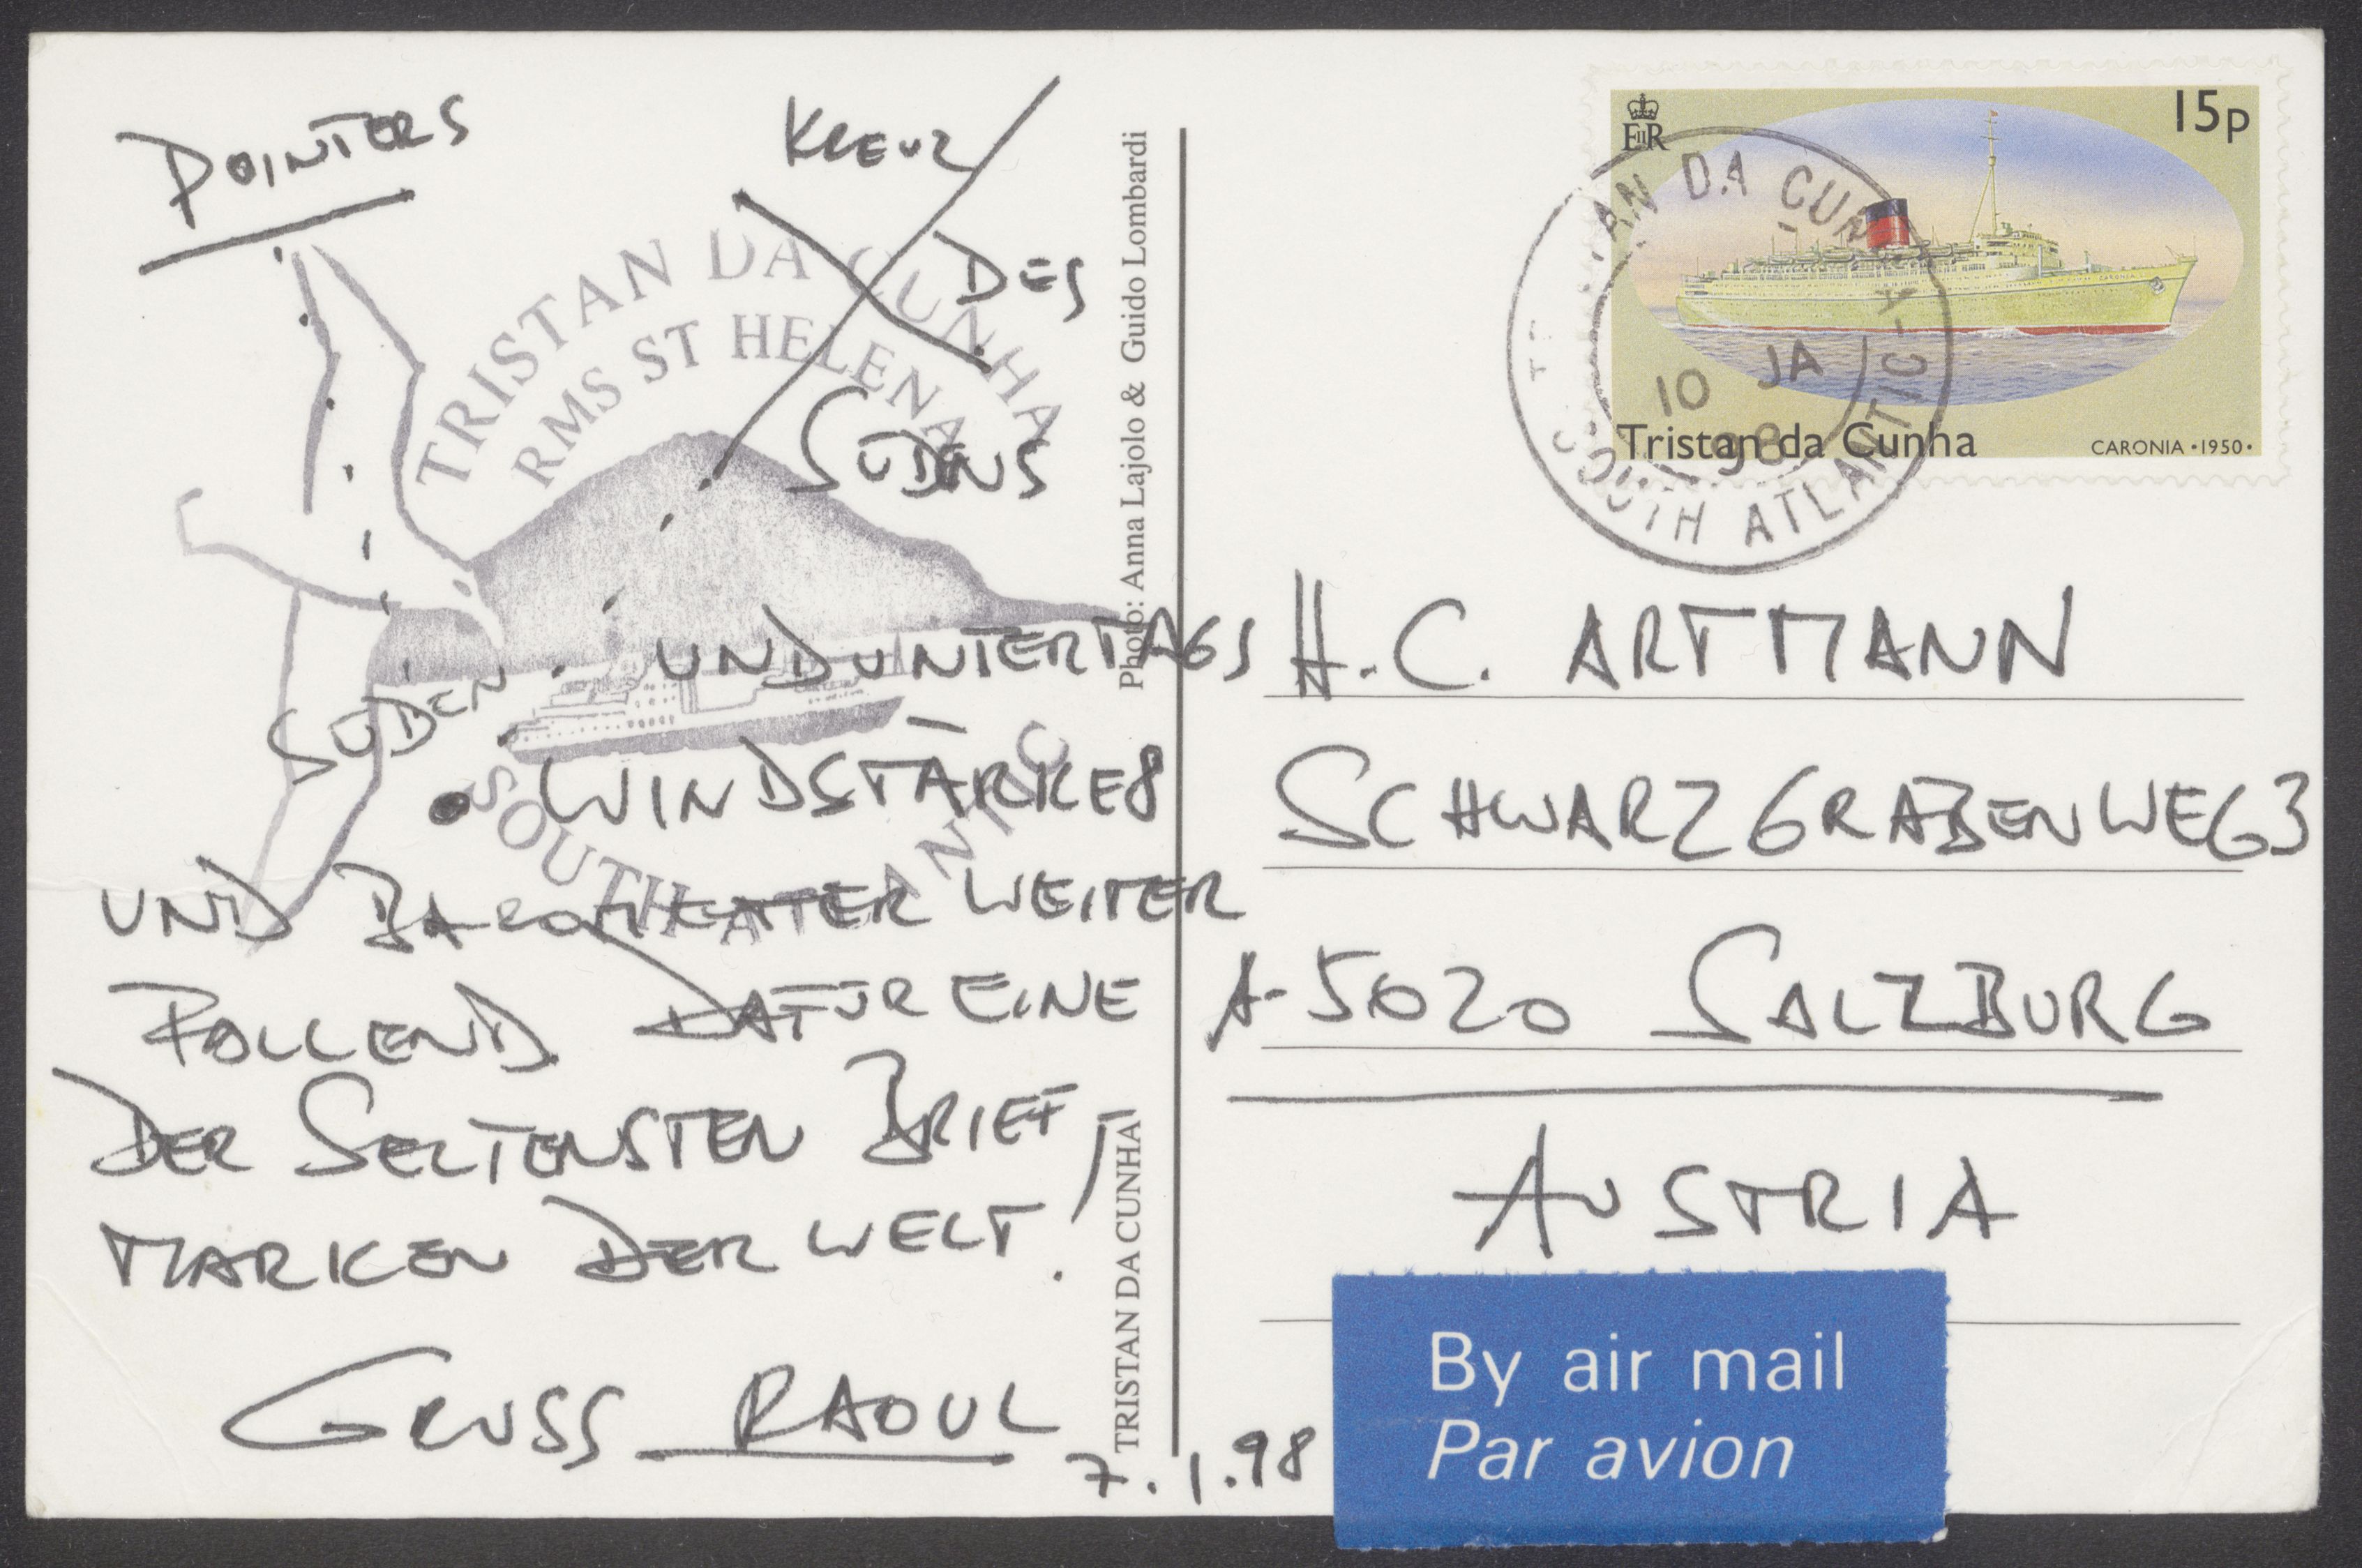 POINTERS
KREUZ
DES
SÜDENS
TRISTAN DA CUNHA
RMS ST HELENA
SOUTH ATLANTIC
SÜDEN
UND UNTERTAGS
WINDSTÄRKE 8
UND BAROMETER WEITER
FALLEND DAFÜR EINE
DER SELTENSTEN BRIEF
MARKEN DER WELT!
GRUSS RAOUL
7.1.98
Photo: Anna Lajolo & Guido Lombardi
TRISTAN DA CUNHA
EIIR
15p
Tristan da Cunha
CARONIA • 1950 •
CARONIA
TRISTAN DA CUNHA
10 JA
98
SOUTH ATLANTIC
H.C. ARTMANN
SCHWARZGRABENWEG 3
A-5020 SALZBURG
AUSTRIA
By air mail
Par avion